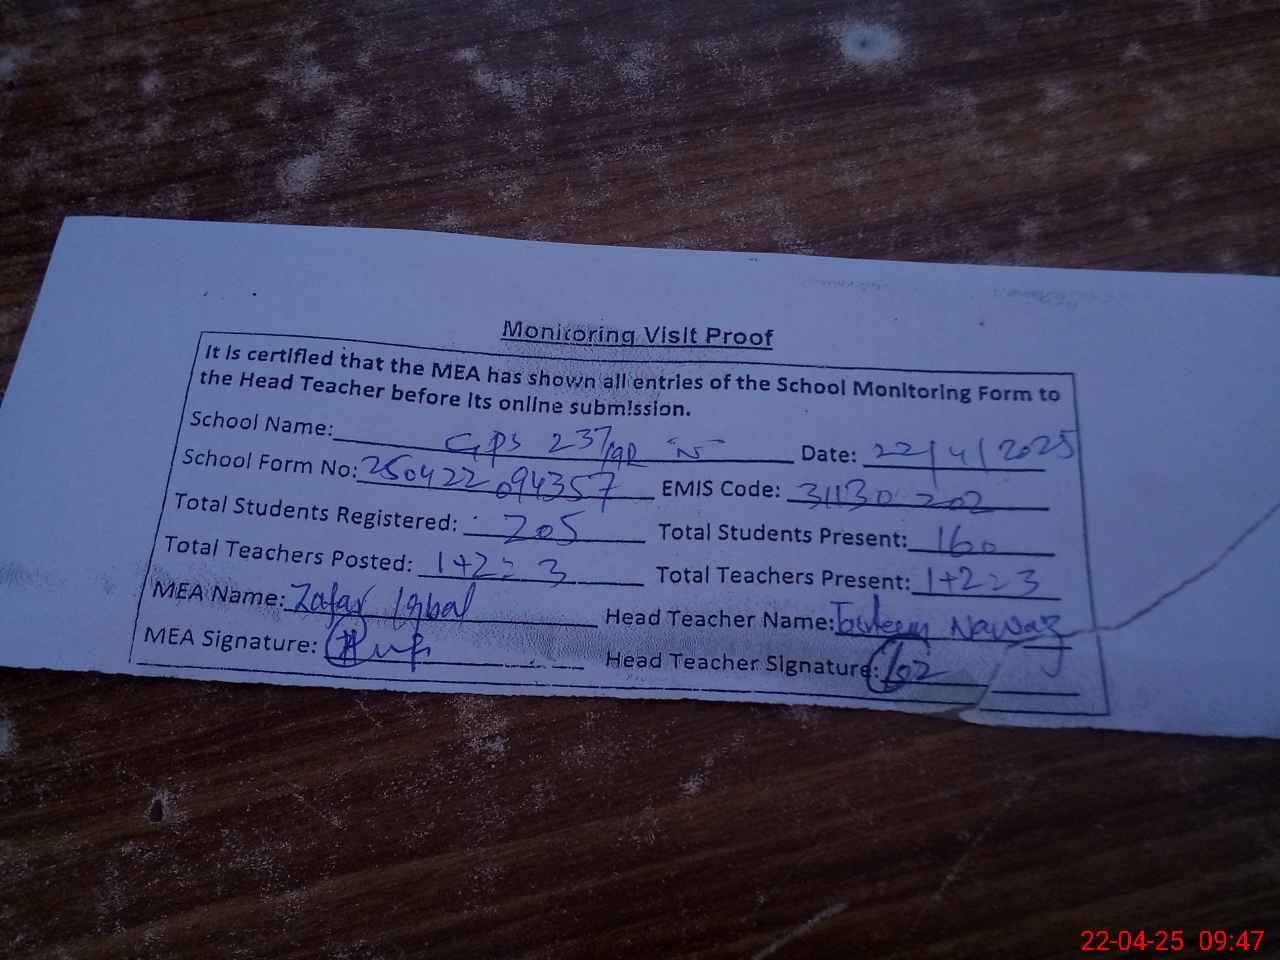 Monitoring Visit Proof
It is certified that the MEA has shown all entries of the School Monitoring Form to
the Head Teacher before its online submission.
School Name: GPS 237/9R "N" Date: 22/4/2025
School Form No: 250422094357 EMIS Code: 31130202
Total Students Registered: 205 Total Students Present: 160
Total Teachers Posted: 1+2=3 Total Teachers Present: 1+2=3
MEA Name: Zafar Iqbal Head Teacher Name: Nawaz
MEA Signature: Head Teacher Signature:
22-04-25 09:47